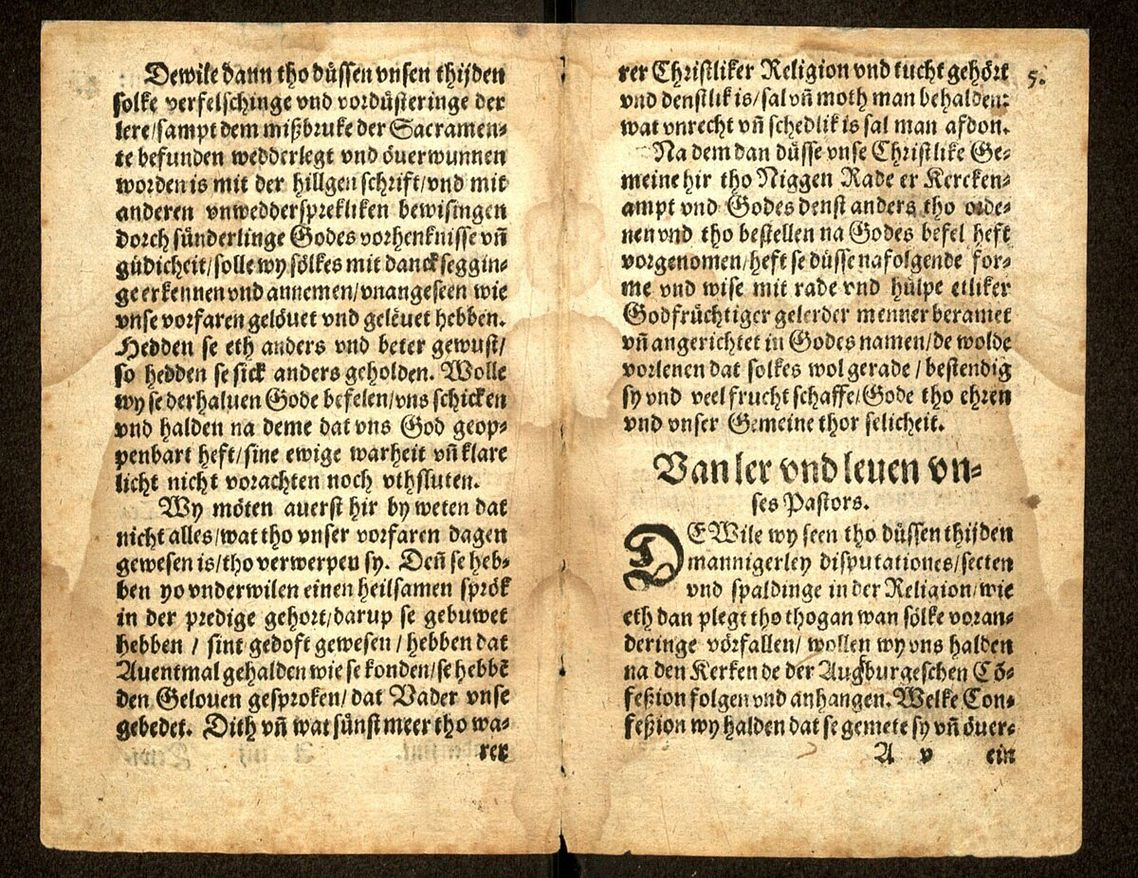 Dewile dann tho düssen vnsen thijden
solke verfelschinge vnd vordüsteringe der
lere/sampt dem mißbruke der Sacramen⸗
te befunden wedderlegt vnd öuerwunnen
worden is mit der hillgen schrift/vnd mit
anderen vnweddersprekliken bewisingen
dorch sünderlinge Godes vorhenknisse vñ
güdicheit/solle wy sölkes mit danck seggin⸗
ge erkennen vnd annemen/vnangeseen wie
vnse vorfaren gelöuet vnd geleuet hebben.
Hedden se eth anders vnd beter gewust/
so hedden se sick anders geholden. Wolle
wy se derhaluen Gode befelen/vns schicken
vnd halden na deme dat vns God geop⸗
penbart heft/sine ewige warheit vñ klare
licht nicht vorachten noch vthsluten.
Wy möten auerst hir by weten dat
nicht alles/wat tho vnser vorfaren dagen
gewesen is/tho verwerpen sy. Deñ se heb⸗
ben yo vnderwilen einen heilsamen sprök
in der predige gehort/darup se gebuwet
hebben / sint gedoft gewesen / hebben dat
Auentmal gehalden wie se konden/se hebbẽ
den Gelouen gesproken/dat Vader vnse
gebedet. Dith vñ wat sünst meer tho wa⸗
rer
5.
rer Christliker Religion vnd tucht gehört
vnd denstlik is/sal vñ moth man behalden:
wat vnrecht vñ schedlik is sal man afdon.
Na dem dan düsse vnse Christlike Ge⸗
meine hir tho Niggen Rade er Kercken⸗
ampt vnd Godes denst anders tho orde⸗
nen vnd tho bestellen na Godes befel heft
vorgenomen/heft se düsse nafolgende for⸗
me vnd wise mit rade vnd hülpe etliker
Godfrüchtiger gelerder menner beramet
vñ angerichtet in Godes namen/de wolde
vorlenen dat solkes wol gerade / bestendig
sy vnd veel frucht schaffe/Gode tho ehren
vnd vnser Gemeine thor selicheit.
Van ler vnd leuen vn⸗
ses Pastors.
DEWile wy seen tho düssen thijden
mannigerley disputationes/secten
vnd spaldinge in der Religion/wie
eth dan plegt tho thogan wan sölke voran⸗
deringe vörfallen/ wollen wy vns halden
na den Kerken de der Augßburgeschen Cõ⸗
feßion folgen vnd anhangen. Welke Con⸗
feßion wy halden dat se gemete sy vñ öuer⸗
A v
ein